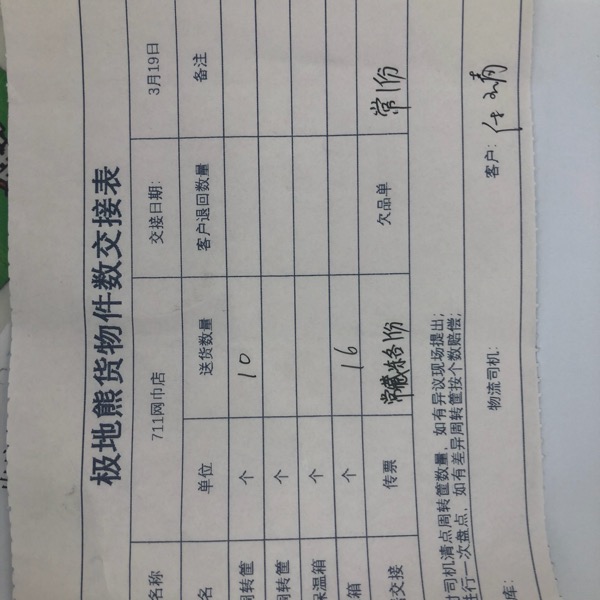 极地熊货物件数交接表
名称 711网巾店 交接日期: 3月19日
名 单位 送货数量 客户退回数量 备注
周转筐 个 10
周转筐 个
保温箱 个
箱 个 16
交接 传票 常藏冻各1份 欠品单 常1份
司机清点周转筐数量, 如有异议现场提出;
进行一次盘点, 如有差异周转筐按个数赔偿;
库: 物流司机: 客户: